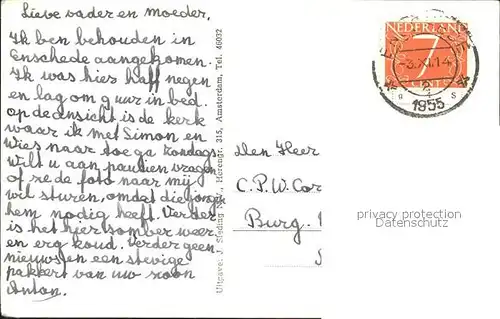 Lieve vader en moeder,
Ik ben behouden in
Enschede aangekomen.
Ik was hier half negen
en lag om 9 uur in bed.
Op de ansicht is de kerk
waar ik met Simon en
Wies naar toe ga Zondags.
Wilt u aan paulien vragen
of ze de foto naar mij
wil sturen, omdat die jongen
hem nodig heeft. Verder
is het hier somber weer
en erg koud. Verder geen
nieuws en een stevige
pakkert van uw zoon
Anton.
Uitgave: J. Sleding N.V., Herengr. 315, Amsterdam, Tel. 49032
NEDERLAND
7
CENTS
-3.XI.14
1955
Den Heer
C.P.W. Cor
Burg.
privacy protection
Datenschutz